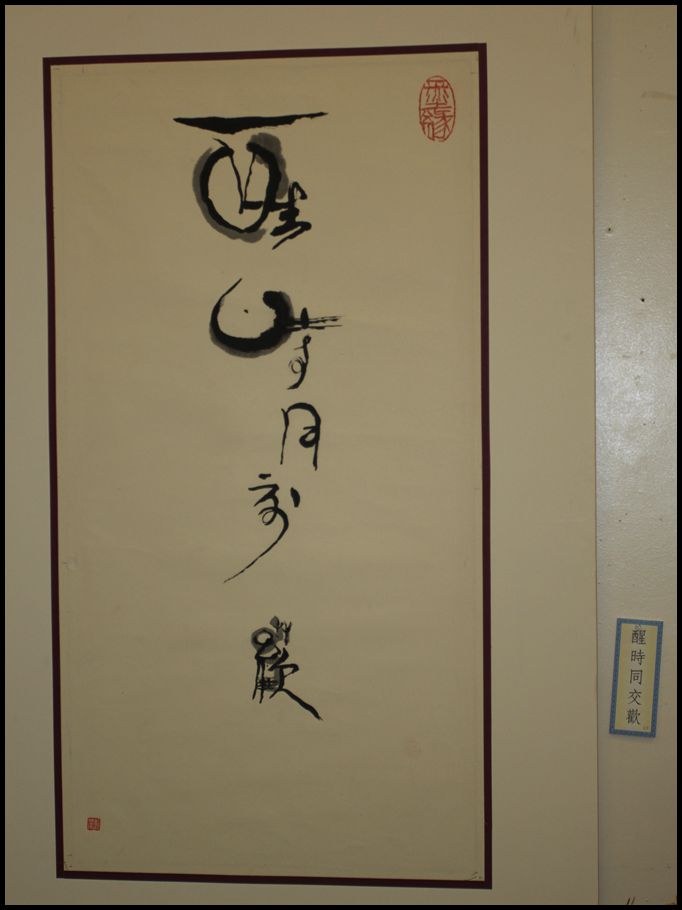 醒時同交歡
醒時同交歡